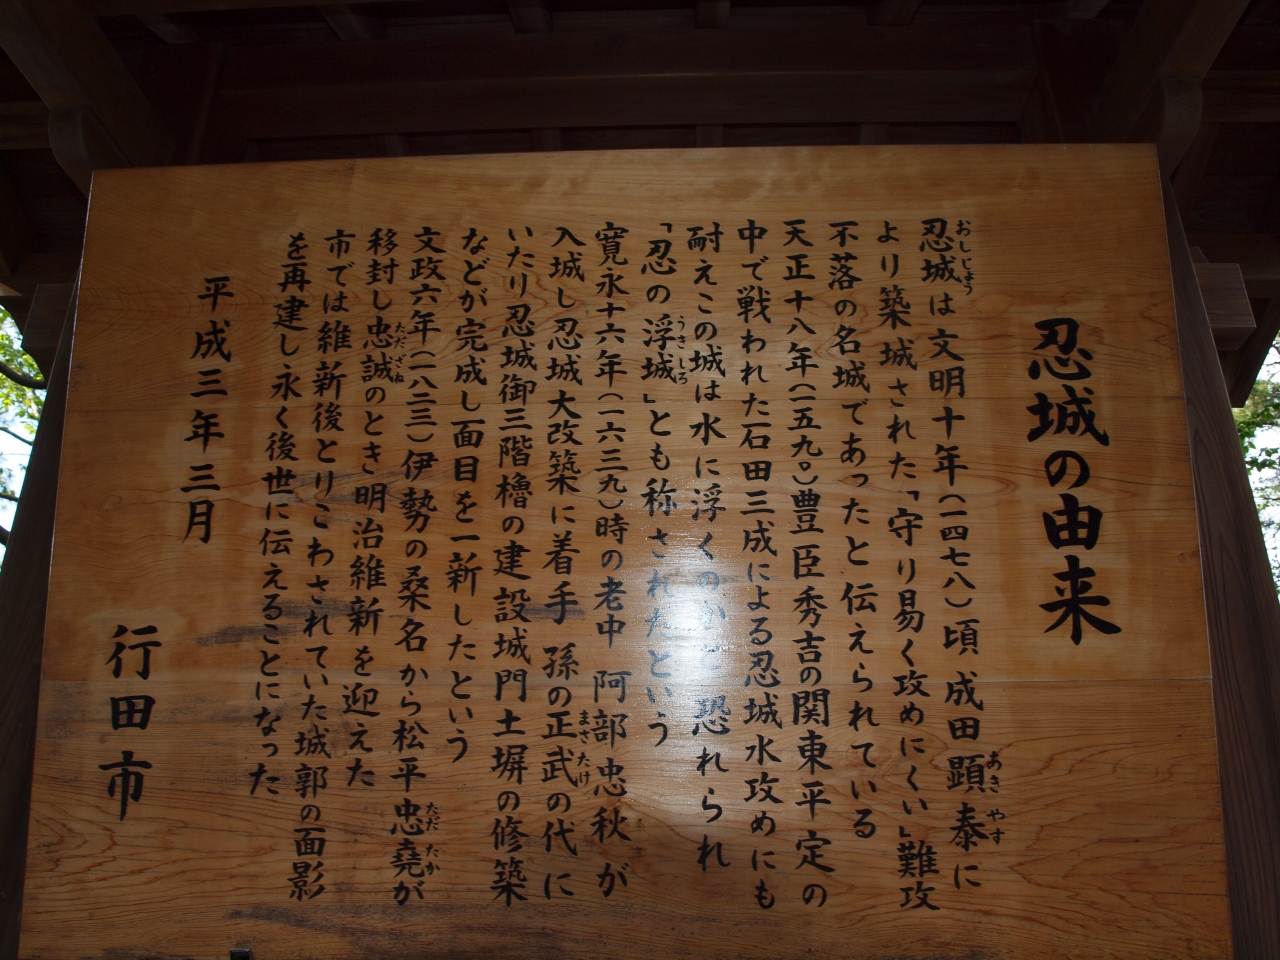 忍城の由来
忍城は文明十年(一四七八)頃 成田顕泰に
より築城された「守り易く攻めにくい」難攻
不落の名城であったと伝えられている
天正十八年(一五九〇)豊臣秀吉の関東平定の
中で戦われた石田三成による忍城水攻めにも
耐えこの城は水に浮くのかと恐れられ
「忍の浮城」とも称されたという
寛永十六年(一六三九)時の老中 阿部忠秋が
入城し忍城大改築に着手 孫の正武の代に
いたり忍城御三階櫓の建設城門土塀の修築
などが完成し面目を一新したという
文政六年(一八二三)伊勢の桑名から松平忠堯が
移封し忠誠のとき明治維新を迎えた
市では維新後とりこわされていた城郭の面影
を再建し永く後世に伝えることになった
平成三年三月
行田市
おしじょう
あき やす
うきしろ
まさたけ
ただ たか
ただざね